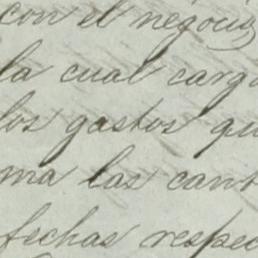 con el negocio
la cual carg
los gastos qu
ma las cant
fechas respec